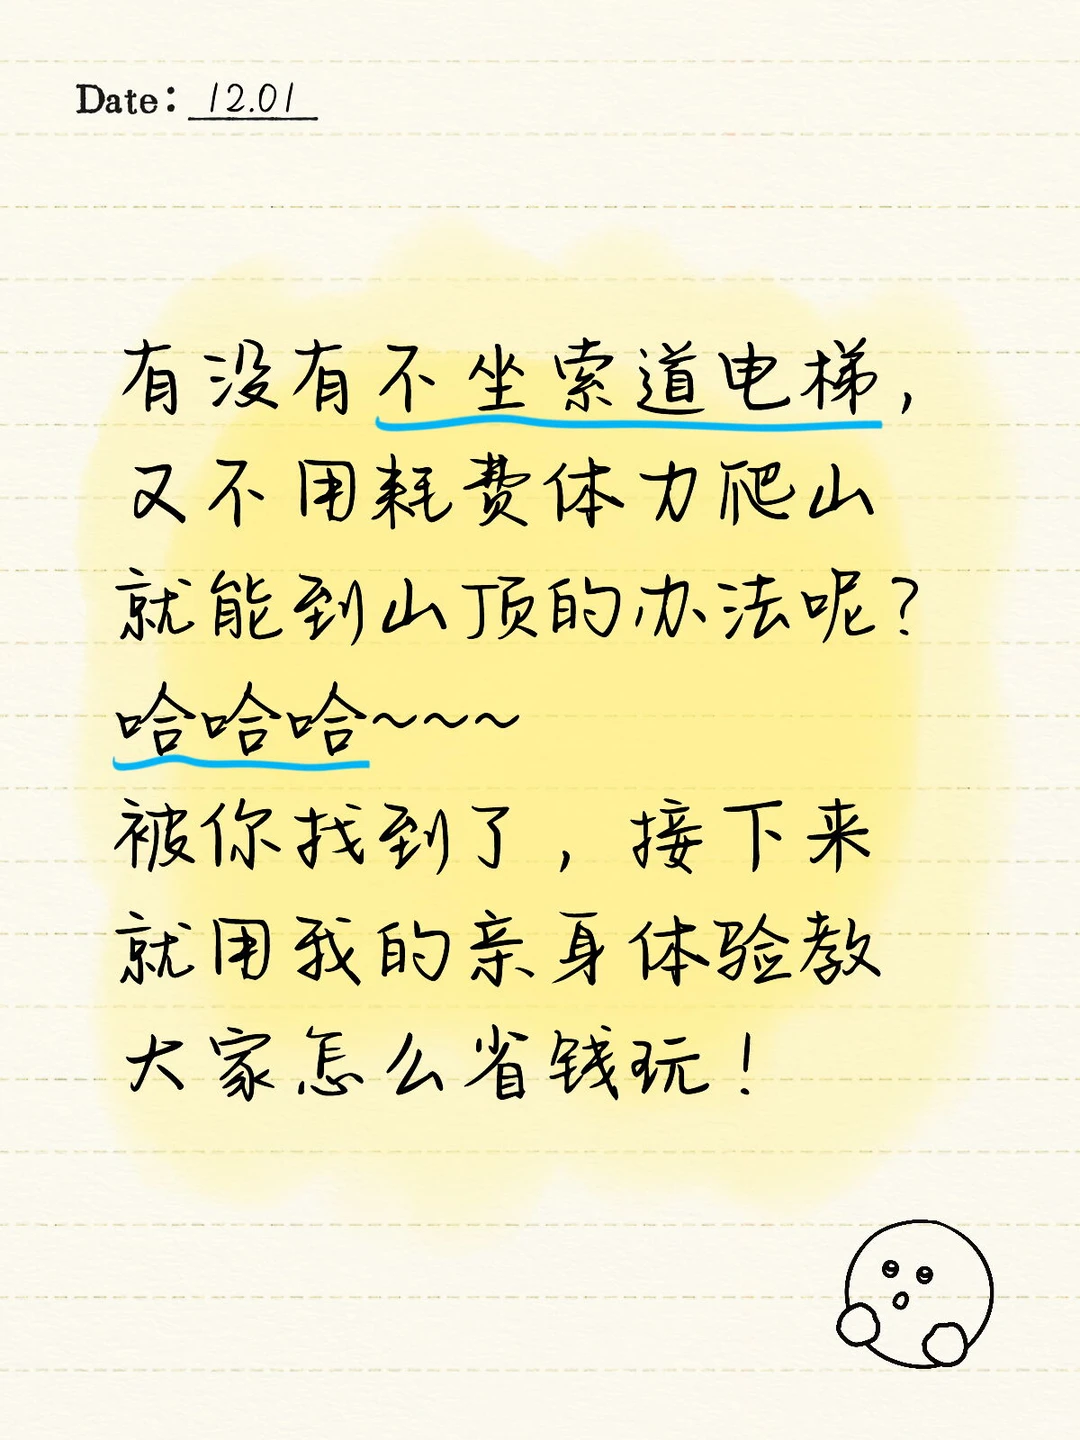 Date: 12.01
有没有不坐索道电梯,
又不用耗费体力爬山
就能到山顶的办法呢?
哈哈哈~~~
被你找到了,接下来
就用我的亲身体验教
大家怎么省钱玩!